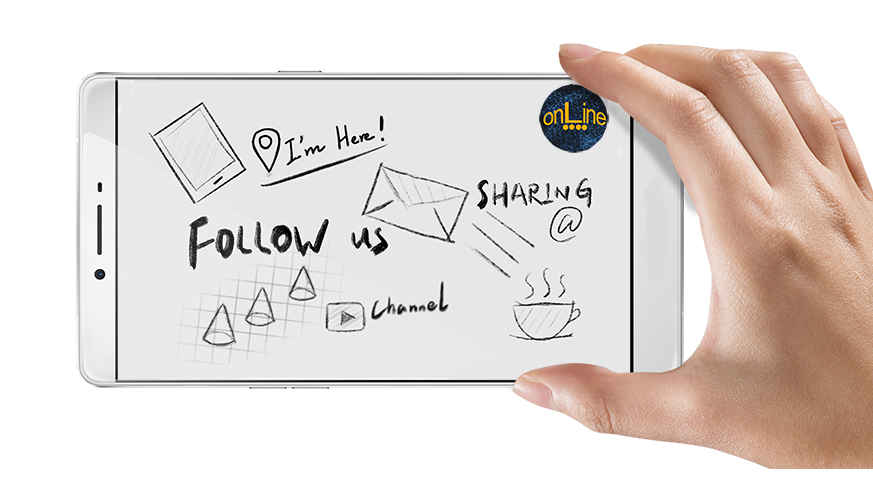 onLine
I'm Here!
SHARING
@
FOLLOW us
Channel